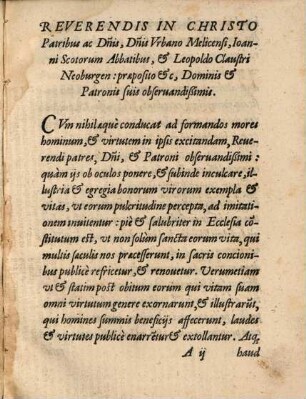 REVERENDIS IN CHRISTO
Patribus ac Dn̄is, Dn̄is Vrbano Melicensi, Ioan-
ni Scotorum Abbatibus, & Leopoldo Claustri
Neoburgen: præposito &c, Dominis &
Patronis suis obseruandißimis.
CVm nihil æquè conducat ad formandos mores
hominum, & virtutem in ipsis excitandam, Reue-
rendi patres, Dn̄i, & Patroni obseruandißimi:
quàm ijs ob oculos ponere, & subinde inculcare, il-
lustria & egregia bonorum virorum exempla &
vitas, vt eorum pulcritudine percepta, ad imitati-
onem inuitentur: piè & salubriter in Ecclesia cō-
stitutum est, vt non solùm sancta eorum vita, qui
multis sæculis nos præcesserunt, in sacris concioni-
bus publicè refricetur, & renouetur. Verumetiam
vt & statim post obitum eorum qui vitam suam
omni virtutum genere exornarunt, & illustrarūt,
qui homines summis beneficijs affecerunt, laudes
& virtutes publicè enarrētur & extollantur. Atq;
A ij haud